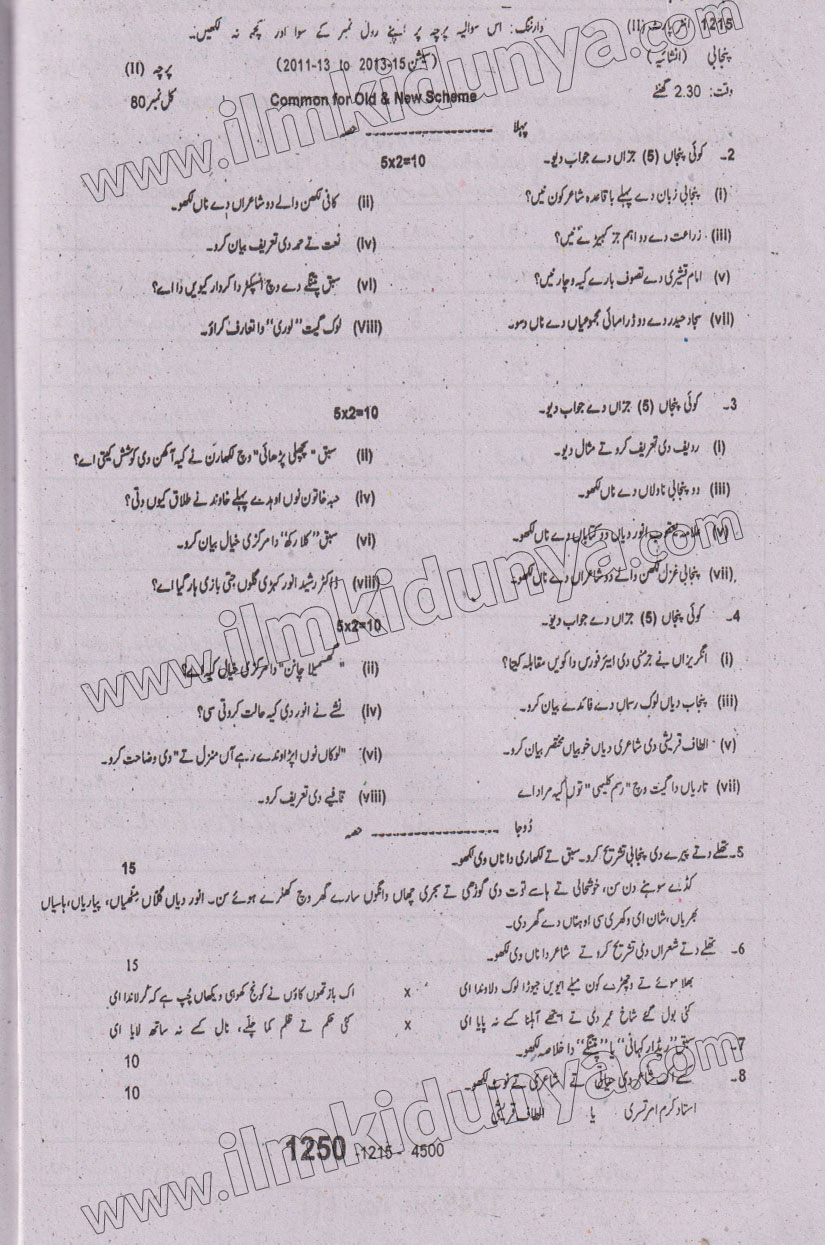 1215 انٹر پارٹ (II) وارننگ: اس سوالیہ پرچہ پر اپنے رول نمبر کے سوا اور کچھ نہ لکھیں۔
پنجابی (انشائیہ) (سیشن 2013-15 to 2011-13) پرچہ (II)
وقت: 2.30 گھنٹے Common for Old & New Scheme کل نمبر 80
پہلا ---------------- حصہ
2- کوئی پنجاں (5) جزاں دے جواب دیو۔ 5x2=10
(i) پنجابی زبان دے پہلے باقاعدہ شاعر کون نیں؟ (ii) کافی لکھن والے دو شاعراں دے ناں لکھو۔
(iii) زراعت دے دو اہم جز کیہڑے نیں؟ (iv) نعت تے حمد دی تعریف بیان کرو۔
(v) امام قشیری دے تصوف بارے کیہ وچار نیں؟ (vi) سبق پتنگے دے وچ انسپکٹر دا کردار کیویں دا اے؟
(vii) سجاد حیدر دے دو ڈرامائی مجموعیاں دے ناں دسو۔ (Viii) لوک گیت "لوری" دا تعارف کراؤ۔
3- کوئی پنجاں (5) جزاں دے جواب دیو۔ 5x2=10
(i) ردیف دی تعریف کرو تے مثال دیو۔ (ii) سبق "پچھلی پڑھائی" وچ لکھارن نے کیہ آکھن دی کوشش کیتی اے؟
(iii) دو پنجابی ناولاں دے ناں لکھو۔ (iv) حبہ خاتون نوں اوہدے پہلے خاوند نے طلاق کیوں دتی؟
(v) علامہ یعقوب انور دیاں دو کتاباں دے ناں لکھو۔ (vi) سبق "کلا رکھ" دا مرکزی خیال بیان کرو۔
(vii) پنجابی غزل لکھن والے دو شاعراں دے ناں لکھو۔ (viii) ڈاکٹر رشید انور کہڑی گلوں جتی بازی ہار گیا اے؟
4- کوئی پنجاں (5) جزاں دے جواب دیو۔ 5x2=10
(i) انگریزاں نے جرمنی دی ایئر فورس دا کویں مقابلہ کیتا؟ (ii) " گھسمیلا چانن" دا مرکزی خیال کیہ اے؟
(iii) پنجاب دیاں لوک رسماں دے فائدے بیان کرو۔ (iv) نشے نے انور دی کیہ حالت کر دتی سی؟
(v) الطاف قریشی دی شاعری دیاں خوبیاں مختصر بیان کرو۔ (vi) "لوکاں نوں اپڑاوندے رہے آں منزل تے" دی وضاحت کرو۔
(vii) تاریاں دا گیت وچ "رسم کلیمی" توں کیہ مراد اے (viii) قافیے دی تعریف کرو۔
دُوجا ---------------- حصہ
5- تھلے دتے پیرے دی پنجابی تشریح کرو۔ سبق تے لکھاری دا ناں وی لکھو۔ 15
کڈے سوہنے دن سن، خوشحالی تے ہاسے توت دی گوڑھی تے سجری چھاں وانگوں سارے گھر وچ کھلرے ہوئے سن۔ انور دیاں گلّاں مِٹھیاں، پیاریاں، ہاسیاں
بھریاں، شان ای وکھری سی اوہناں دے گھر دی۔
6- تھلے دتے شعراں دی تشریح کرو تے شاعر دا ناں وی لکھو۔ 15
بھلا موئے تے وچھڑے کون میلے ایویں جیوڑا لوک ولاوندا ای x اک باز تھوں کاؤں نے کونج کھوہی ویکھاں چپ ہے کہ کرلاندا ای
کئی بول گئے شاخ عمر دی تے ایتھے آہلنا کسے نہ پایا ای x کئی حکم تے ظلم کما چلے، نال کسے نہ ساتھ لایا ای
7- سبق "ریڈار کہانی" یا "پتنگے" دا خلاصہ لکھو۔ 10
8- کسے اک شاعر دی حیاتی تے شاعری تے نوٹ لکھو۔ 10
استاد کرم امرتسری یا الطاف قریشی
1250 -1215 - 4500
www.ilmkidunya.com
www.ilmkidunya.com
www.ilmkidunya.com